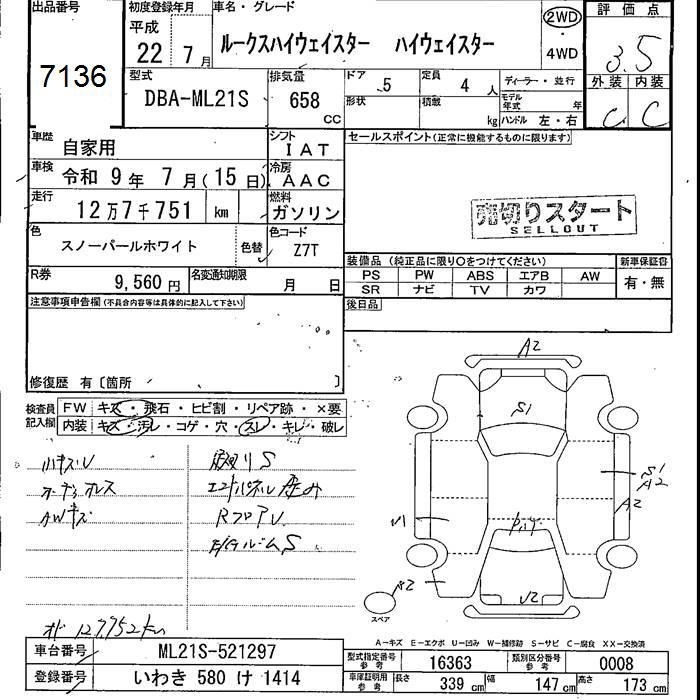 出品番号
7136
初度登録年月
平成
22 7月
車名・グレード
ルークスハイウェイスター ハイウェイスター
2WD
・
4WD
評価点
3.5
外装 内装
C C
型式
DBA-ML21S
排気量
658
CC
ドア
5
形状
定員
4人
積載
kg
ディーラー・並行
モデル年式 年
ハンドル 左・右
車歴
自家用
シフト
IAT
車検
令和 9年 7月(15日)
冷房
AAC
走行
12万7千751 km
燃料
ガソリン
色
スノーパールホワイト
色替
色コード
Z7T
R券
9,560円
名変通知期限
月 日
セールスポイント(正常に機能するものに限ります)
売切りスタート
SELLOUT
装備品(純正品に限り○をつけてください)
新車保証書
PS PW ABS エアB AW
SR ナビ TV カワ
有・無
後日品
注意事項申告欄(不具合内容等は具体的に記入して下さい)
修復歴 有〔箇所 〕
検査員
記入欄
FW キズ・飛石・ヒビ割・リペア跡・×要
内装 キズ・汚レ・コゲ・穴・スレ・キレ・破レ
小キズU
AWキズ
RフロアU
オド 127,752km
A2
S1
S1
A2
A2
U1
A2
U2
スペア
A-キズ E-エクボ U-凹み W-補修跡 S-サビ C-腐食 XX-交換済
車台番号
ML21S-521297
登録番号
いわき 580 け 1414
型式指定番号
参考
16363
類別区分番号
参考
0008
車庫証明用
参考
長さ
339 cm
幅
147 cm
高さ
173 cm